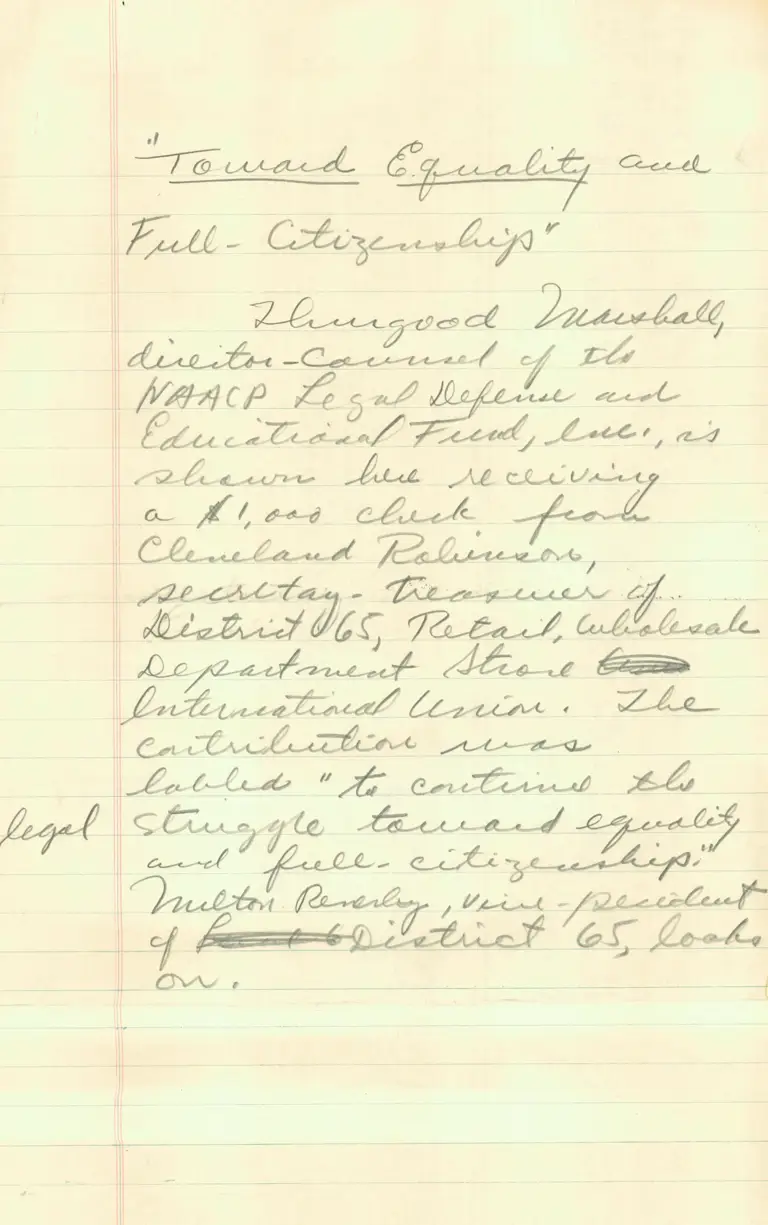 "Toward Equality and
Full-Citizenship"
Thurgood Marshall,
director-Counsel of the
NAACP Legal Defense and
Educational Fund, Inc., is
shown here receiving
a $1,000 check from
Cleveland Robinson,
secretay-treasurer of
District 65, Retail, Wholesale
Department Strore
International Union. The
contribution was
labled "to continue the
legal struggle toward equality
and full-citizenship."
Milton Reverby, vice-president
of District 65, looks
on.